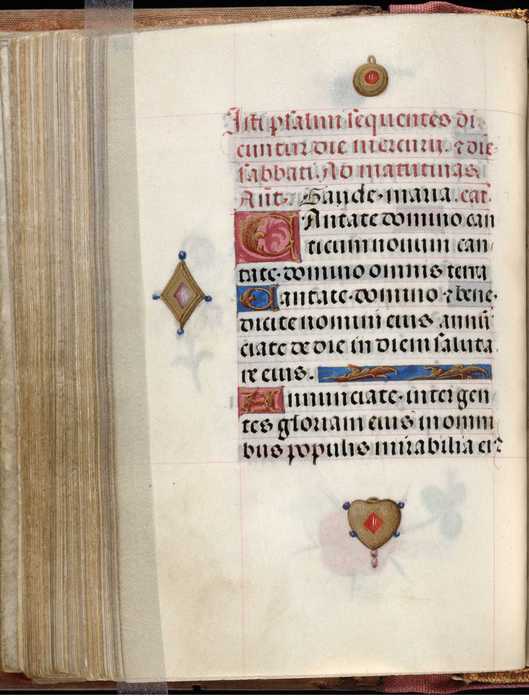 Isti psalmi sequentes di
cuntur die mercurij. ⁊ die
sabbati. Ad matutinas
Añt. Gaude maria. cãt.
Cantate domino can
ticum nouum can
tate domino omnis terra
Cantate domino ⁊ bene
dicite nomini eius annũ
ciate de die in diem saluta
re eius.
Annunciate inter gen
tes gloriam eius in omni
bus populis mirabilia ei⁹